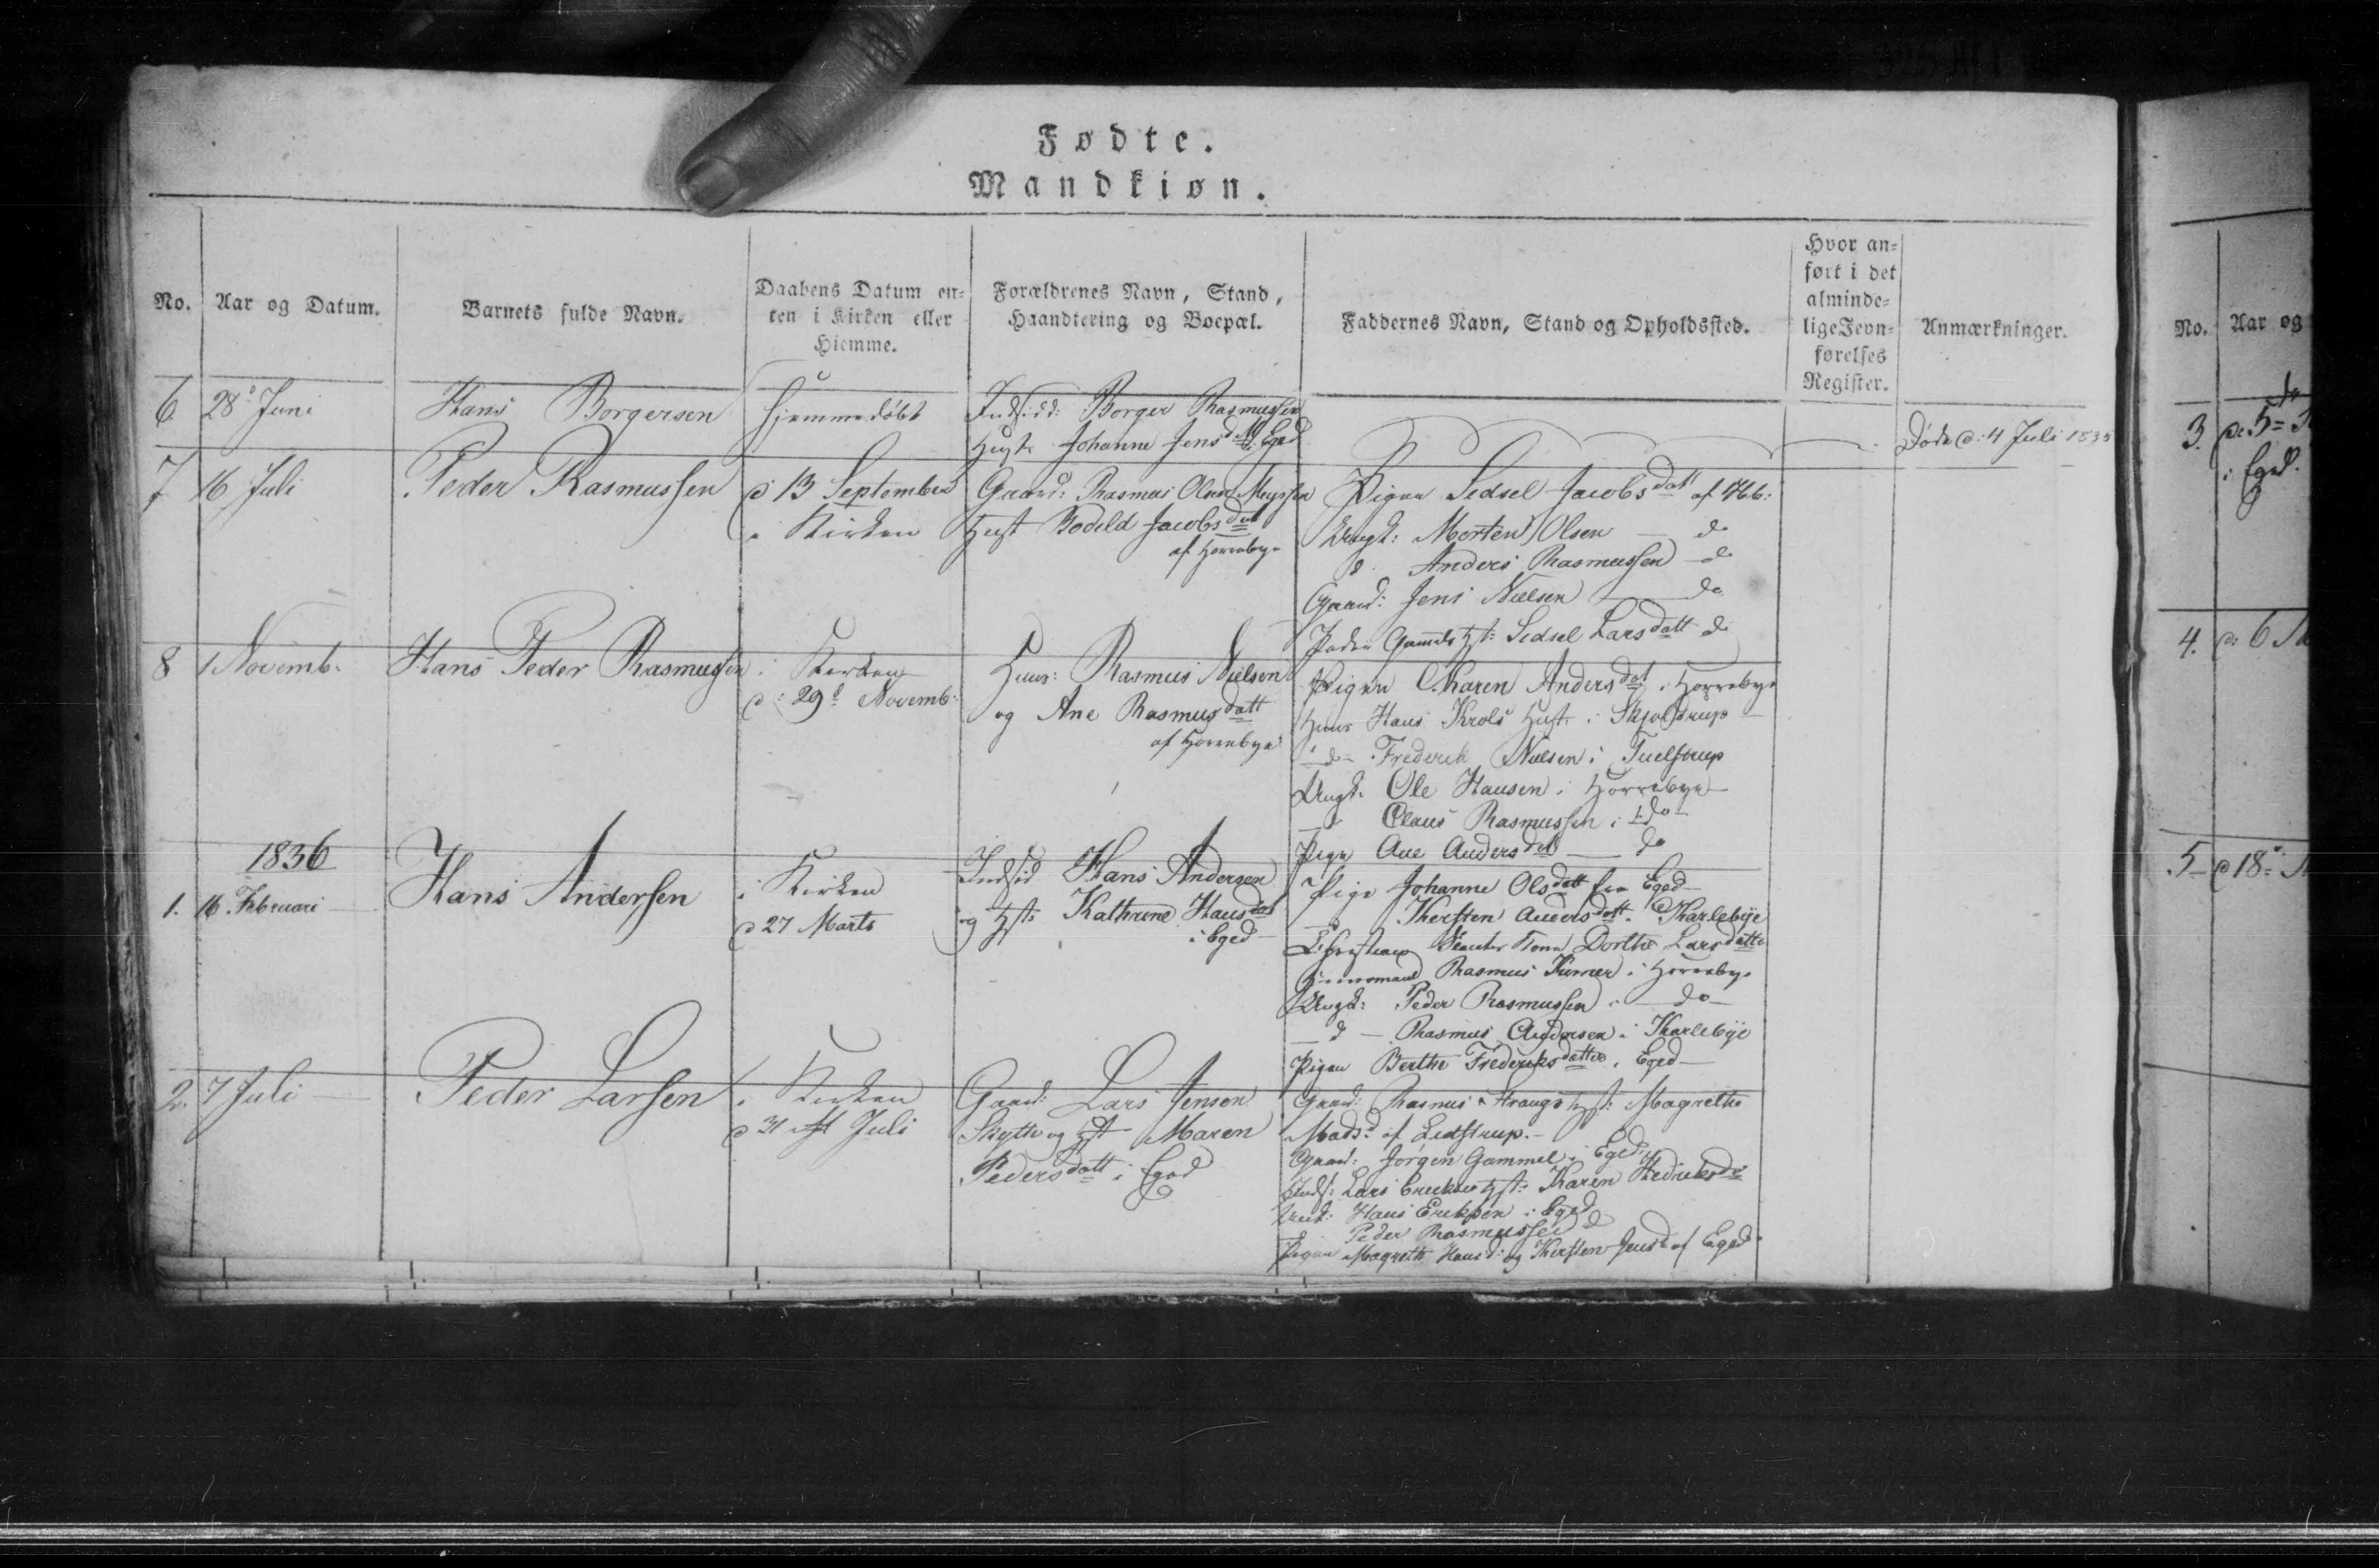 Fødte.
Mandkiøn.
No.
Aar og Datum.
Barnets fulde Navn.
Daabens Datum en-
ten i Kirken eller
Hiemme.
Forældrenes Navn, Stand,
Haandtering og Boepæl.
Faddernes Navn, Stand og Opholdssted.
Hvor an-
ført i det
alminde-
lige Jevn-
førelses
Register.
Anmærkninger.
6. 28d Juni
Hans Borgersen
hjemmedöbt
Indsidd: Borger Rasmussen
Hust. Johanne Jensdatt i Eged
Døde d: 4 Juli 1835
7 16 Juli
Peder Rasmussen
d 13 September
i Kirken
Gaard: Rasmus Olsen
Hust Bodild Jacobsdat
af Horrebye
Pigen Sidsel Jacobsdatt af
Ungk: Morten Olsen do
d Anders Rasmussen do
Gaard: Jens Nielsen do
Hst: Sidsel Larsdatt do
8 1 Novemb.
Hans Peder Rasmussen
i Kirken
d: 29d Novemb:
Huus: Rasmus Nielsen
og Ane Rasmusdatt
af Horrebye
Pigen Karen Andersdat i Horrebye
Huus Hans Krols Hust. i Skjoldrup
d Frederik Nielsen i
Ungk. Ole Hansen i Horrebye
d Claus Rasmussen i do
Pige Ane Andersdat do
1836
1. 16. Februari
Hans Andersen
i Kirken
d 27 Marts
Indsid Hans Andersen
og Hst: Kathrine Hansdat
i Eged
Pige Johanne Olsdatt fra Eged
d Kirsten Andersdatt. Karlebye
Kone Dorthe Larsdatte
Huusmand Rasmus i Horrebye
Ungk: Peder Rasmussen i do
d Rasmus Andersen i Karlebye
Pigen Berthe Frederiksdatter i Eged
2. 7 Juli
Peder Larsen
i Kirken
d 31 Juli
Gaard: Lars Jensen
Skytte og Hst Maren
Pedersdatt i Eged
Gaard: Rasmus Hst: Magrethe
Madsd: af
Gaard: Jörgen Gammel i Eged
Inds: Lars Hst: Karen
Ungk: Hans Eriksen i Eged
Peder Rasmussen d
Pigen Magrethe Hansd: og Kirsten Jensd af Eged
No.
Aar og
3.
d: 5
i Eged.
4. d: 6
5 d 18